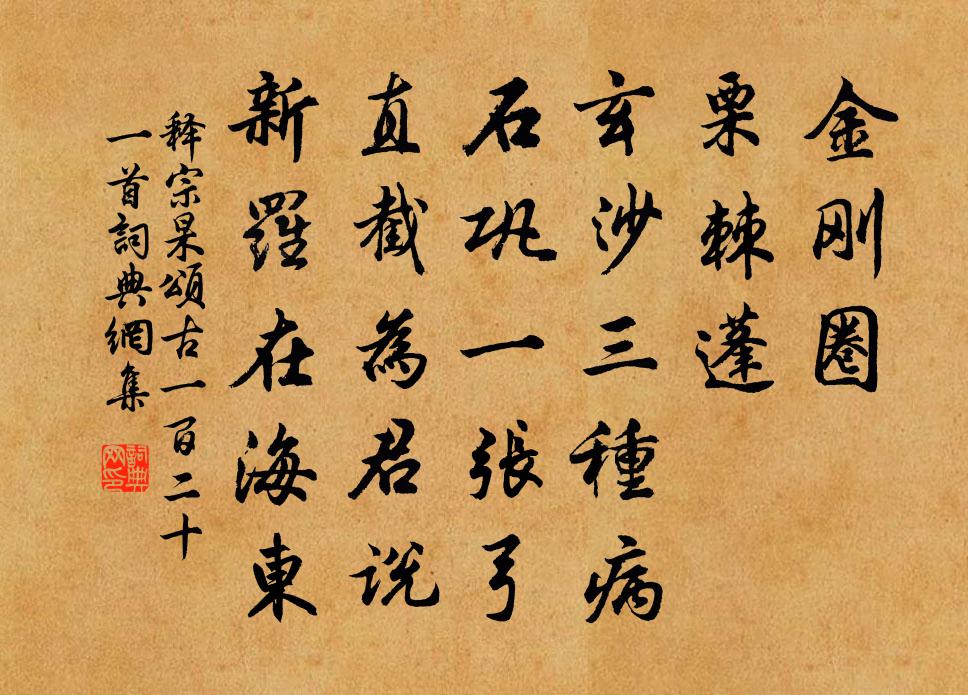 金刚圈
栗棘蓬
玄沙三種病
石巩一張弓
直截為君説
新羅在海東
释宗杲頌古一百二十
一首詞典網集
詞典
网印